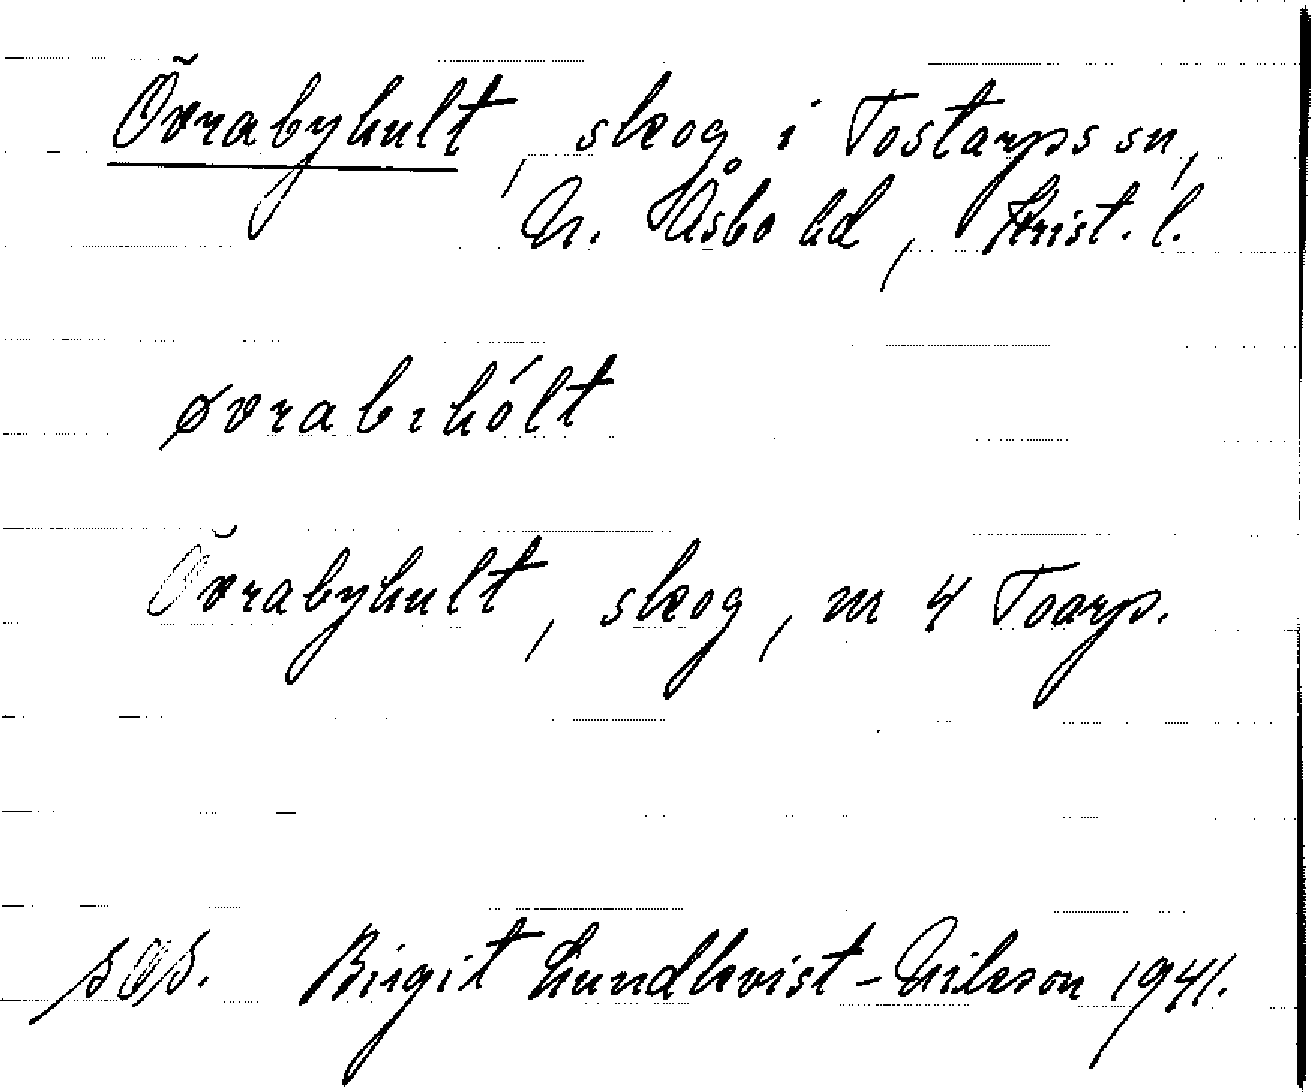 Övrabyhult, skog i Tostarps sn,
N. Åsbo hd, Krist. l.
øvrabıhólt
Övrabyhult, skog, m 4 Toarp.
Birgit Lundkvist-Nilsson 1941.